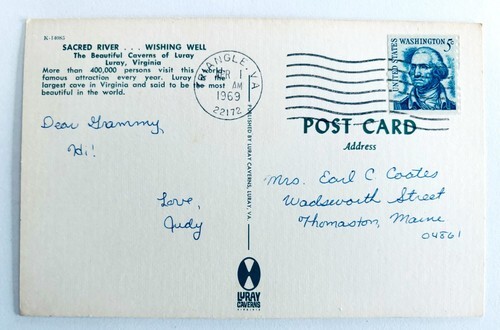 K-14061
SACRED RIVER . . . WISHING WELL
The Beautiful Caverns of Luray
Luray, Virginia
More than 400,000 persons visit this world-
famous attraction every year. Luray is the
largest cave in Virginia and said to be the most
beautiful in the world.
Dear Grammy,
Hi!
Love,
Judy
PUBLISHED BY LURAY CAVERNS, LURAY, VA.
LURAY
CAVERNS
VIRGINIA
TRIANGLE, VA.
APR 1
AM
1969
22172
UNITED STATES
WASHINGTON 5c
POST CARD
Address
Mrs. Earl C Coates
Wadsworth Street
Thomaston, Maine
04861